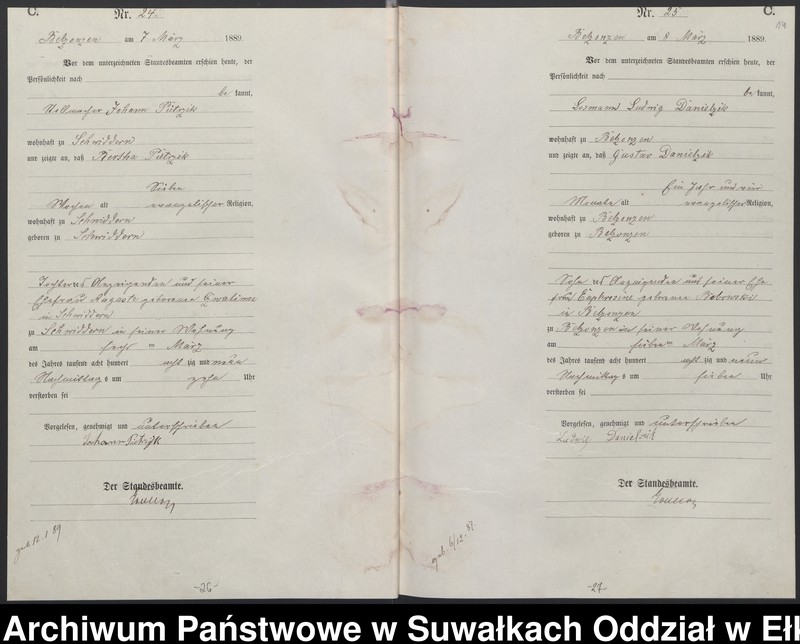 C.
Nr. 24.
Belzonzen am 7 März 1889.
Vor dem unterzeichneten Standesbeamten erschien heute, der
Persönlichkeit nach
be kannt,
Stellmacher Johann Putzik
wohnhaft zu Schwiddern
und zeigte an, daß Bertha Putzik
Sieben
Wochen alt evangelischer Religion,
wohnhaft zu Schwiddern
geboren zu Schwiddern
Tochter des Anzeigenden und seiner
Ehefrau Auguste geborenen
in Schwiddern
zu Schwiddern in seiner Wohnung
am sechsten März
des Jahres tausend acht hundert achtzig und neun
Nachmittags um zehn Uhr
verstorben sei
Vorgelesen, genehmigt und unterschrieben
Johann Putzik
Der Standesbeamte.
geb. 12.1 89
-26-
Nr. 25
C.
Belzonzen am 8 März 1889.
Vor dem unterzeichneten Standesbeamten erschien heute, der
Persönlichkeit nach
be kannt,
Losmann Ludwig Danielzik
wohnhaft zu Belzonzen
und zeigte an, daß Gustav Danielzik
Ein Jahr und vier
Monate alt evangelischer Religion,
wohnhaft zu Belzonzen
geboren zu Belzonzen
Sohn des Anzeigenden und seiner Ehe
frau Euphrosine geborene Bobowski
in Belzonzen
zu Belzonzen in seiner Wohnung
am sieben ten März
des Jahres tausend acht hundert achtzig und neun
Nachmittags um sieben Uhr
verstorben sei
Vorgelesen, genehmigt und unterschrieben
Ludwig
Der Standesbeamte.
-27-
Archiwum Państwowe w Suwałkach Oddział w Eł